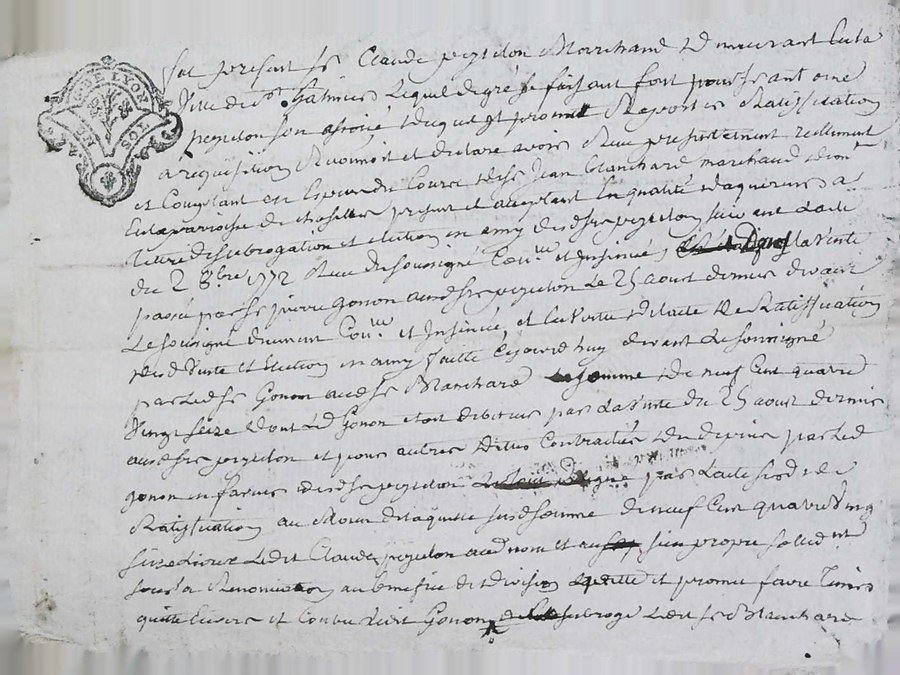 GEN. DE LYON
fut present sr Claude peyrelon Marchand demeurant en la
Ville de st Galmier Lequel de gré se faisant fort pour sr antoine
peyrelon son associé duquel promet Raporter Ratiffication
a requisition Reconnoit et declare avoir Receu presentement reellement
et Comptant en Especes du Cours de sr Jean Blanchard marchand
En la parroisse de présent et aceptant En qualité d'aquereur a
tittre de subrogation et élection en amy desd srs peyrelon suivant L'acte
du 2 8bre 1772 Receu du soussigné et Insinué, La Vente
passée par sr pierre gonon auxd srs peyrelon Le 25 aout dernier devant
Le soussigné et Insinué, et En Vertu de L'acte de Ratiffication
desd Vente et Election en amy faitte cejourd'huy devant Le soussigné
par Led sr Gonon aud sr Blanchard La somme de neuf Cent quatre
Vingt seize dont Led Gonon etoit debiteur par La Vente du 25 aout dernier
auxd srs peyrelon et pour autres Dettes Contractées par Led
gonon en faveur desd srs peyrelon par L'acte susd de
Ratiffication au Moien de laquelle susd somme de neuf Cent quatre Ving
seize Livres Ledit Claude peyrelon aud nom et sien propre sollid.nt
sous la Renonciation au benefice de division quitte et promet faire tenir
quitte Envers et Contre Ledit Gonon subroge Led sr Blanchard